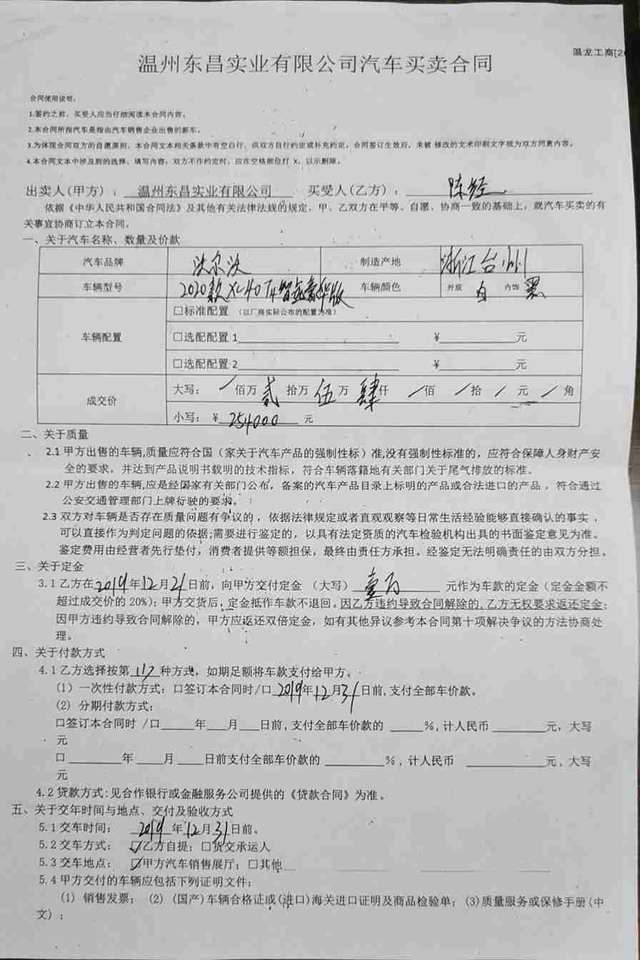 温龙工商[2
温州东昌实业有限公司汽车买卖合同
合同使用说明:
1.签约之前,买受人应当仔细阅读本合同内容。
2.本合同所指汽车是指由汽车销售企业出售的新车。
3.为体现合同双方的自愿原则,本合同文本相关条款中有空白行,供双方自行约定或补充约定。合同签订生效后,未被 修改的文本印刷文字视为双方同意内容。
4.本合同文本中涉及到的选择、填写内容,双方不作约定时,应在空格部位打 X,以示删除。
出卖人(甲方): 温州东昌实业有限公司 买受人(乙方): 陈经
依据《中华人民共和国合同法》及其他有关法律法规的规定,甲、乙双方在平等、自愿、协商一致的基础上,就汽车买卖的有
关事宜协商订立本合同。
一、关于汽车名称、数量及价款
汽车品牌 沃尔沃 制造产地 浙江台州
车辆型号 2020款XC40T4智远豪华版 车辆颜色 外观 白 内饰 黑
车辆配置 口标准配置 (以厂商实际公布的配置为准)
口选配配置 1 ¥ 元
口选配配置 2 ¥ 元
成交价 大写: / 佰万 贰 拾万 伍 万 肆 仟 / 佰 / 拾 / 元 / 角
小写: ¥ 254000 元
二、关于质量
2.1 甲方出售的车辆,质量应符合国(家关于汽车产品的强制性标)准,没有强制性标准的,应符合保障人身财产安
全的要求,并达到产品说明书载明的技术指标,符合车辆落籍地有关部门关于尾气排放的标准。
2.2 甲方出售的车辆,应是经国家有关部门公布,备案的汽车产品目录上标明的产品或合法进口的产品,符合通过
公安交通管理部门上牌行驶的要求。
2.3 双方对车辆是否存在质量问题有争议的,依据法律规定或者直观观察等日常生活经验能够直接确认的事实,
可以直接作为判定问题的依据;需要进行鉴定的,以具有法定资质的汽车检验机构出具的书面鉴定意见为准。
鉴定费用由经营者先行垫付,消费者提供等额担保,最终由责任方承担。经鉴定无法明确责任的由双方分担。
三、关于定金
3.1 乙方在 2019 年 12 月 21 日前,向甲方交付定金 (大写) 壹万 元作为车款的定金(定金金额不
超过成交价的 20%);甲方交货后,定金抵作车款不退回。因乙方违约导致合同解除的,乙方无权要求返还定金;
因甲方违约导致合同解除的,甲方应返还双倍定金,如有其他异议参考本合同第十项解决争议的方法协商处
理。
四、关于付款方式
4.1 乙方选择按第 种方式,如期足额将车款支付给甲方。
(1) 一次性付款方式:口签订本合同时/口 2019 年 12 月 31 日前,支付全部车价款。
(2) 分期付款方式:
口签订本合同时 /口 年 月 日前,支付全部车价款的 %,计人民币 元,大写
元
口 年 月 日前支付全部车价款的 %,计人民币 元,大写
元
4.2 贷款方式:见合作银行或金融服务公司提供的《贷款合同》为准。
五、关于交车时间与地点、交付及验收方式
5.1 交车时间: 2019 年 12 月 31 日前。
5.2 交车方式: ☑乙方自提;口货交承运人
5.3 交车地点: ☑甲方汽车销售展厅;口其他
5.4 甲方交付的车辆应包括下列证明文件:
(1) 销售发票; (2) (国产)车辆合格证或(进口)海关进口证明及商品检验单;(3)质量服务或保修手册(中
文);